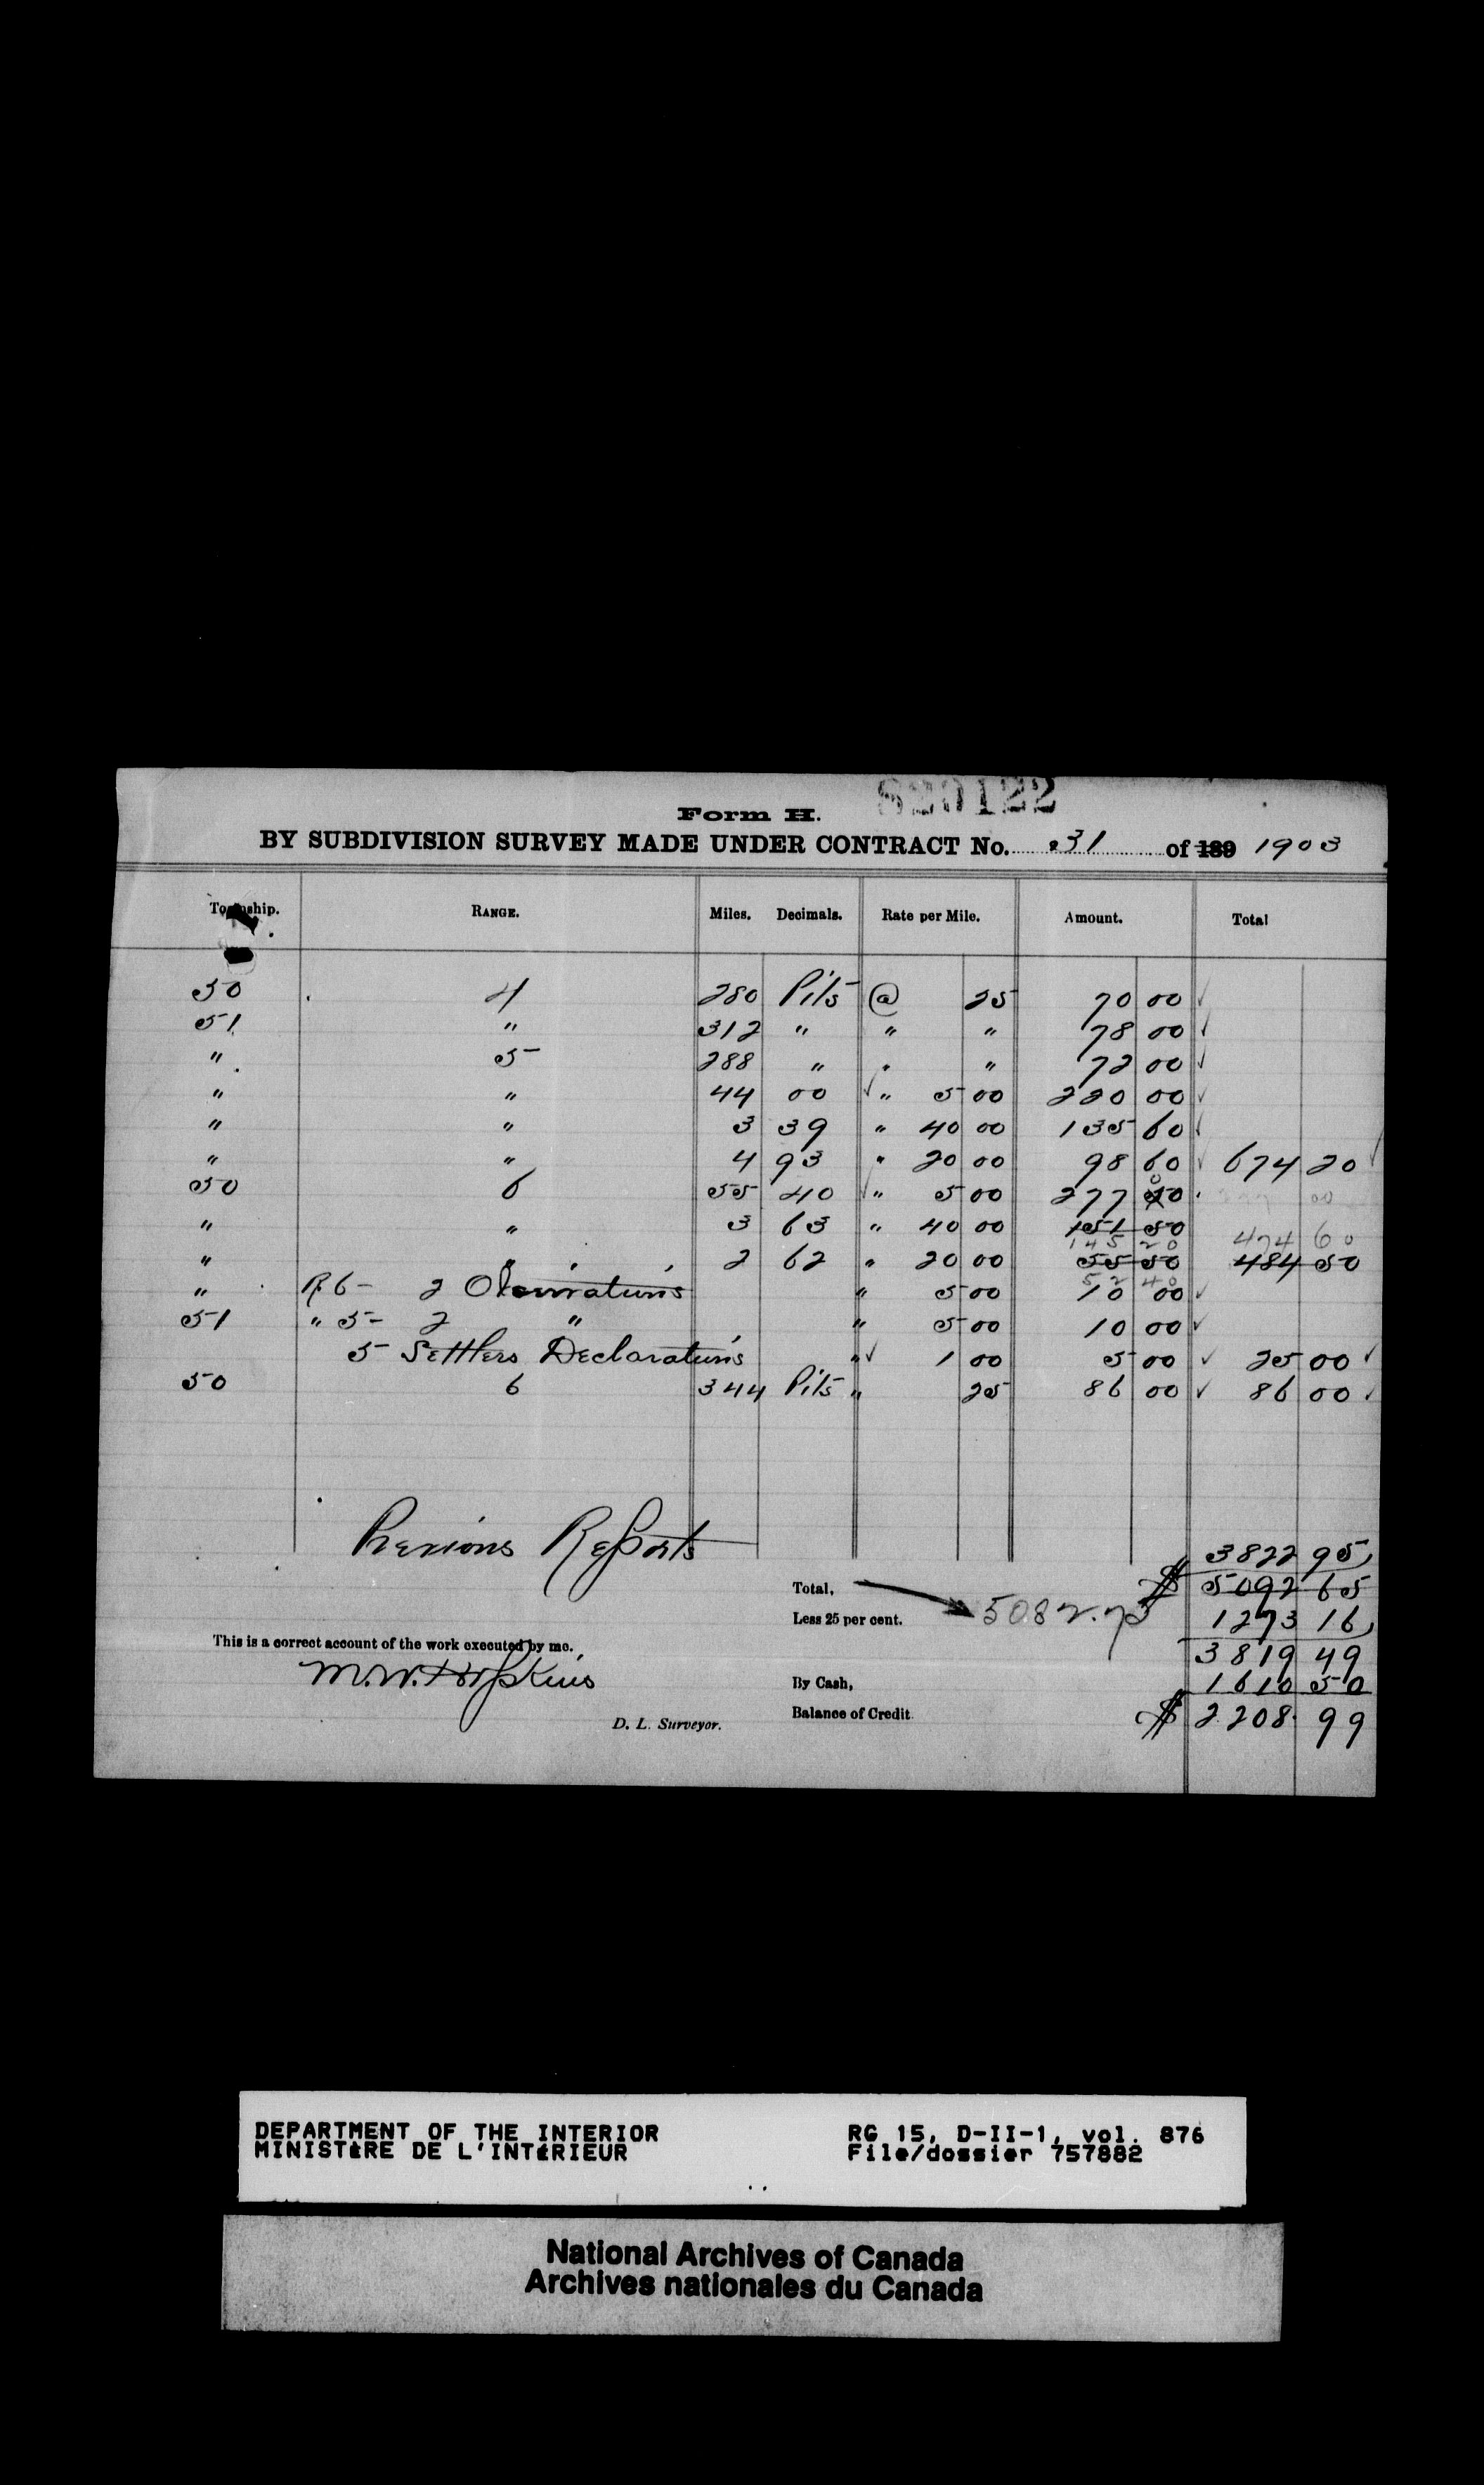 820122
Form H.
BY SUBDIVISION SURVEY MADE UNDER CONTRACT No. 31 of 189 1903
Township. RANGE. Miles. Decimals. Rate per Mile. Amount. Total
50 4 280 Pits @ 25 70 00 ✓
51 " 312 " " " 78 00 ✓
" 5 288 " " " 72 00 ✓
" " 44 00 ✓ " 5 00 220 00 ✓
" " 3 39 " 40 00 135 60 ✓
" " 4 93 " 20 00 98 60 ✓ 674 20 ✓
50 6 55 40 ✓ " 5 00 277 50 0
" " 3 63 " 40 00 151 50
145 20 474 60
" " 2 62 " 20 00 55 50 484 50
52 40
" R6- 2 Observations " 5 00 10 00 ✓
51 " 5- 2 " " 5 00 10 00 ✓
5 Settlers Declarations " ✓ 1 00 5 00 ✓ 25 00 ✓
50 6 344 Pits " 25 86 00 ✓ 86 00 ✓
Previous Reports 3822 95
Total, $ 5092 65
Less 25 per cent. 5082.75 1273 16
This is a correct account of the work executed by me. 3819 49
M.W. Hopkins By Cash, 1610 50
D. L. Surveyor. Balance of Credit $ 2208 99
DEPARTMENT OF THE INTERIOR RG 15, D-II-1, vol. 876
MINISTÈRE DE L'INTÉRIEUR File/dossier 757882
National Archives of Canada
Archives nationales du Canada